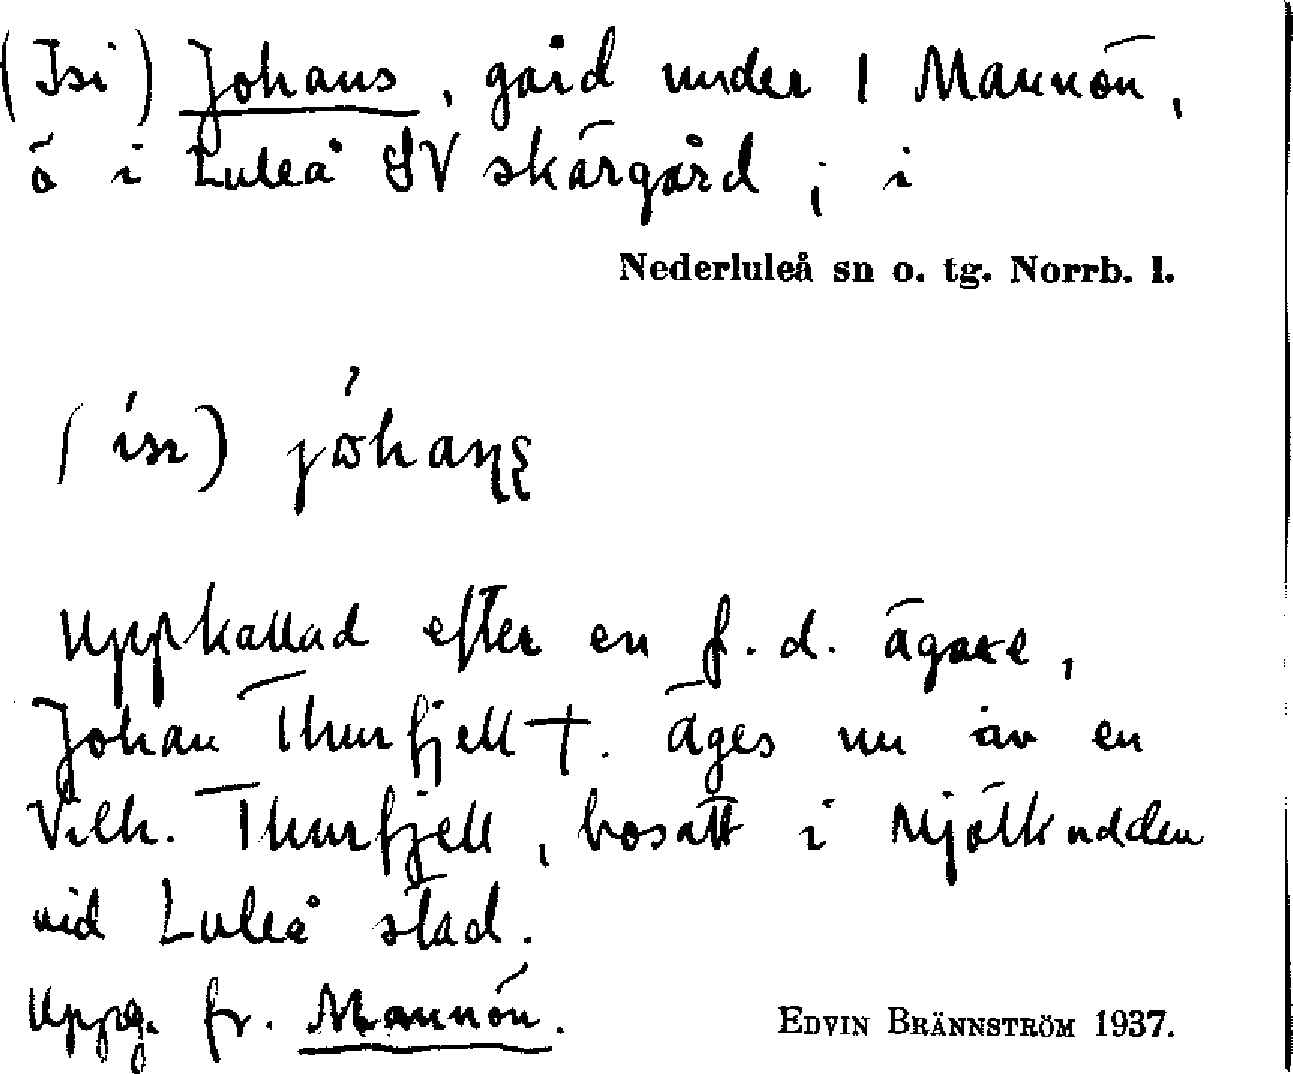 (Isi) Johans, gård under 1 Mannön,
ö i Luleå SV skärgård; i
Nederluleå sn o. tg. Norrb. l.
Uppkallad efter en f.d. ägare,
Johan Thurfjell †. Äges nu av en
Vilh. Thurfjell, bosatt i Mjölkudden
vid Luleå stad.
Uppg. fr. Mannön.
EDVIN BRÄNNSTRÖM 1937.